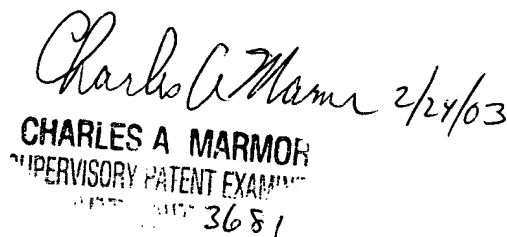 Charles A Marmor 2/24/03
CHARLES A MARMOR
SUPERVISORY PATENT EXAMINER
3681